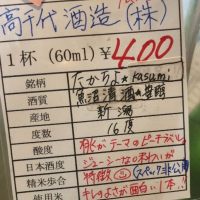 高千代酒造(株)
1杯(60ml)¥400
銘柄 たかちよ★kasumi
酒質
産地 新潟
度数 16度
酸度 桃がテーマのピーチラベル。
日本酒度 ジューシーな味わいが
精米歩合 特徴 (スペック非公開)
使用米 キレのよさが面白い1本!